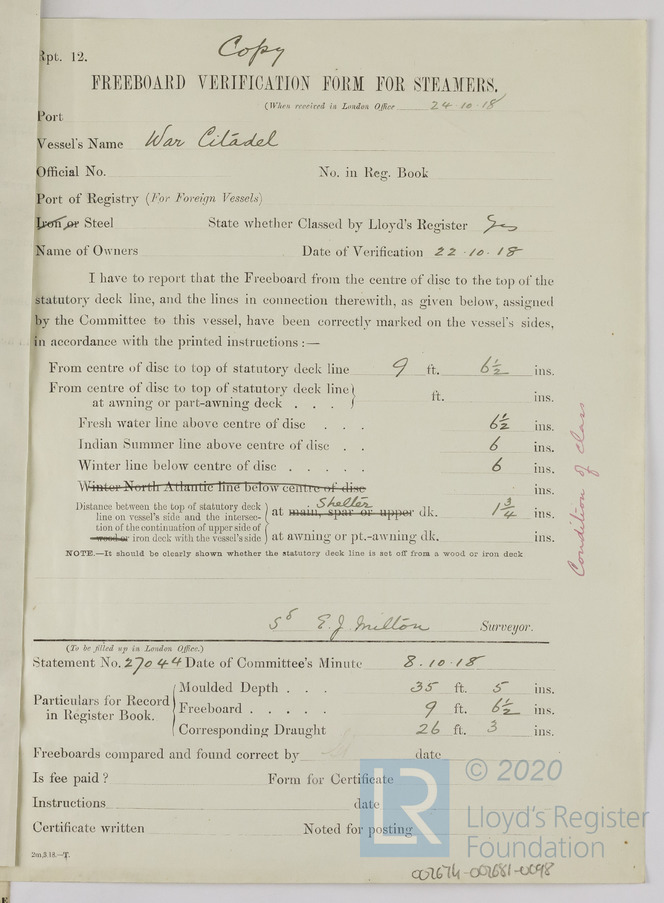 Rpt. 12.
Copy
FREEBOARD VERIFICATION FORM FOR STEAMERS.
(When received in London Office 24·10·18
Port
Vessel's Name War Citadel
Official No. No. in Reg. Book
Port of Registry (For Foreign Vessels)
Iron or Steel State whether Classed by Lloyd's Register Yes
Name of Owners Date of Verification 22·10·18
I have to report that the Freeboard from the centre of disc to the top of the
statutory deck line, and the lines in connection therewith, as given below, assigned
by the Committee to this vessel, have been correctly marked on the vessel's sides,
in accordance with the printed instructions :—
From centre of disc to top of statutory deck line 9 ft. 6½ ins.
From centre of disc to top of statutory deck line
at awning or part-awning deck . . . ft. ins.
Fresh water line above centre of disc . . . 6½ ins.
Indian Summer line above centre of disc . . 6 ins.
Winter line below centre of disc . . . . . 6 ins.
Winter North Atlantic line below centre of disc ins.
Distance between the top of statutory deck
line on vessel's side and the intersec-
tion of the continuation of upper side of
wood or iron deck with the vessel's side
Shelter
at main, spar or upper dk. 1¾ ins.
at awning or pt.-awning dk. ins.
NOTE.—It should be clearly shown whether the statutory deck line is set off from a wood or iron deck
Condition of class
Sd E. J. Milton Surveyor.
(To be filled up in London Office.)
Statement No. 27044 Date of Committee's Minute 8·10·18
Particulars for Record
in Register Book.
Moulded Depth . . . 35 ft. 5 ins.
Freeboard . . . . . 9 ft. 6½ ins.
Corresponding Draught 26 ft. 3 ins.
Freeboards compared and found correct by date
Is fee paid ? Form for Certificate
Instructions date
Certificate written Noted for posting
2m,3.18.—T.
LR
© 2020
Lloyd's Register
Foundation
002674-002681-0098